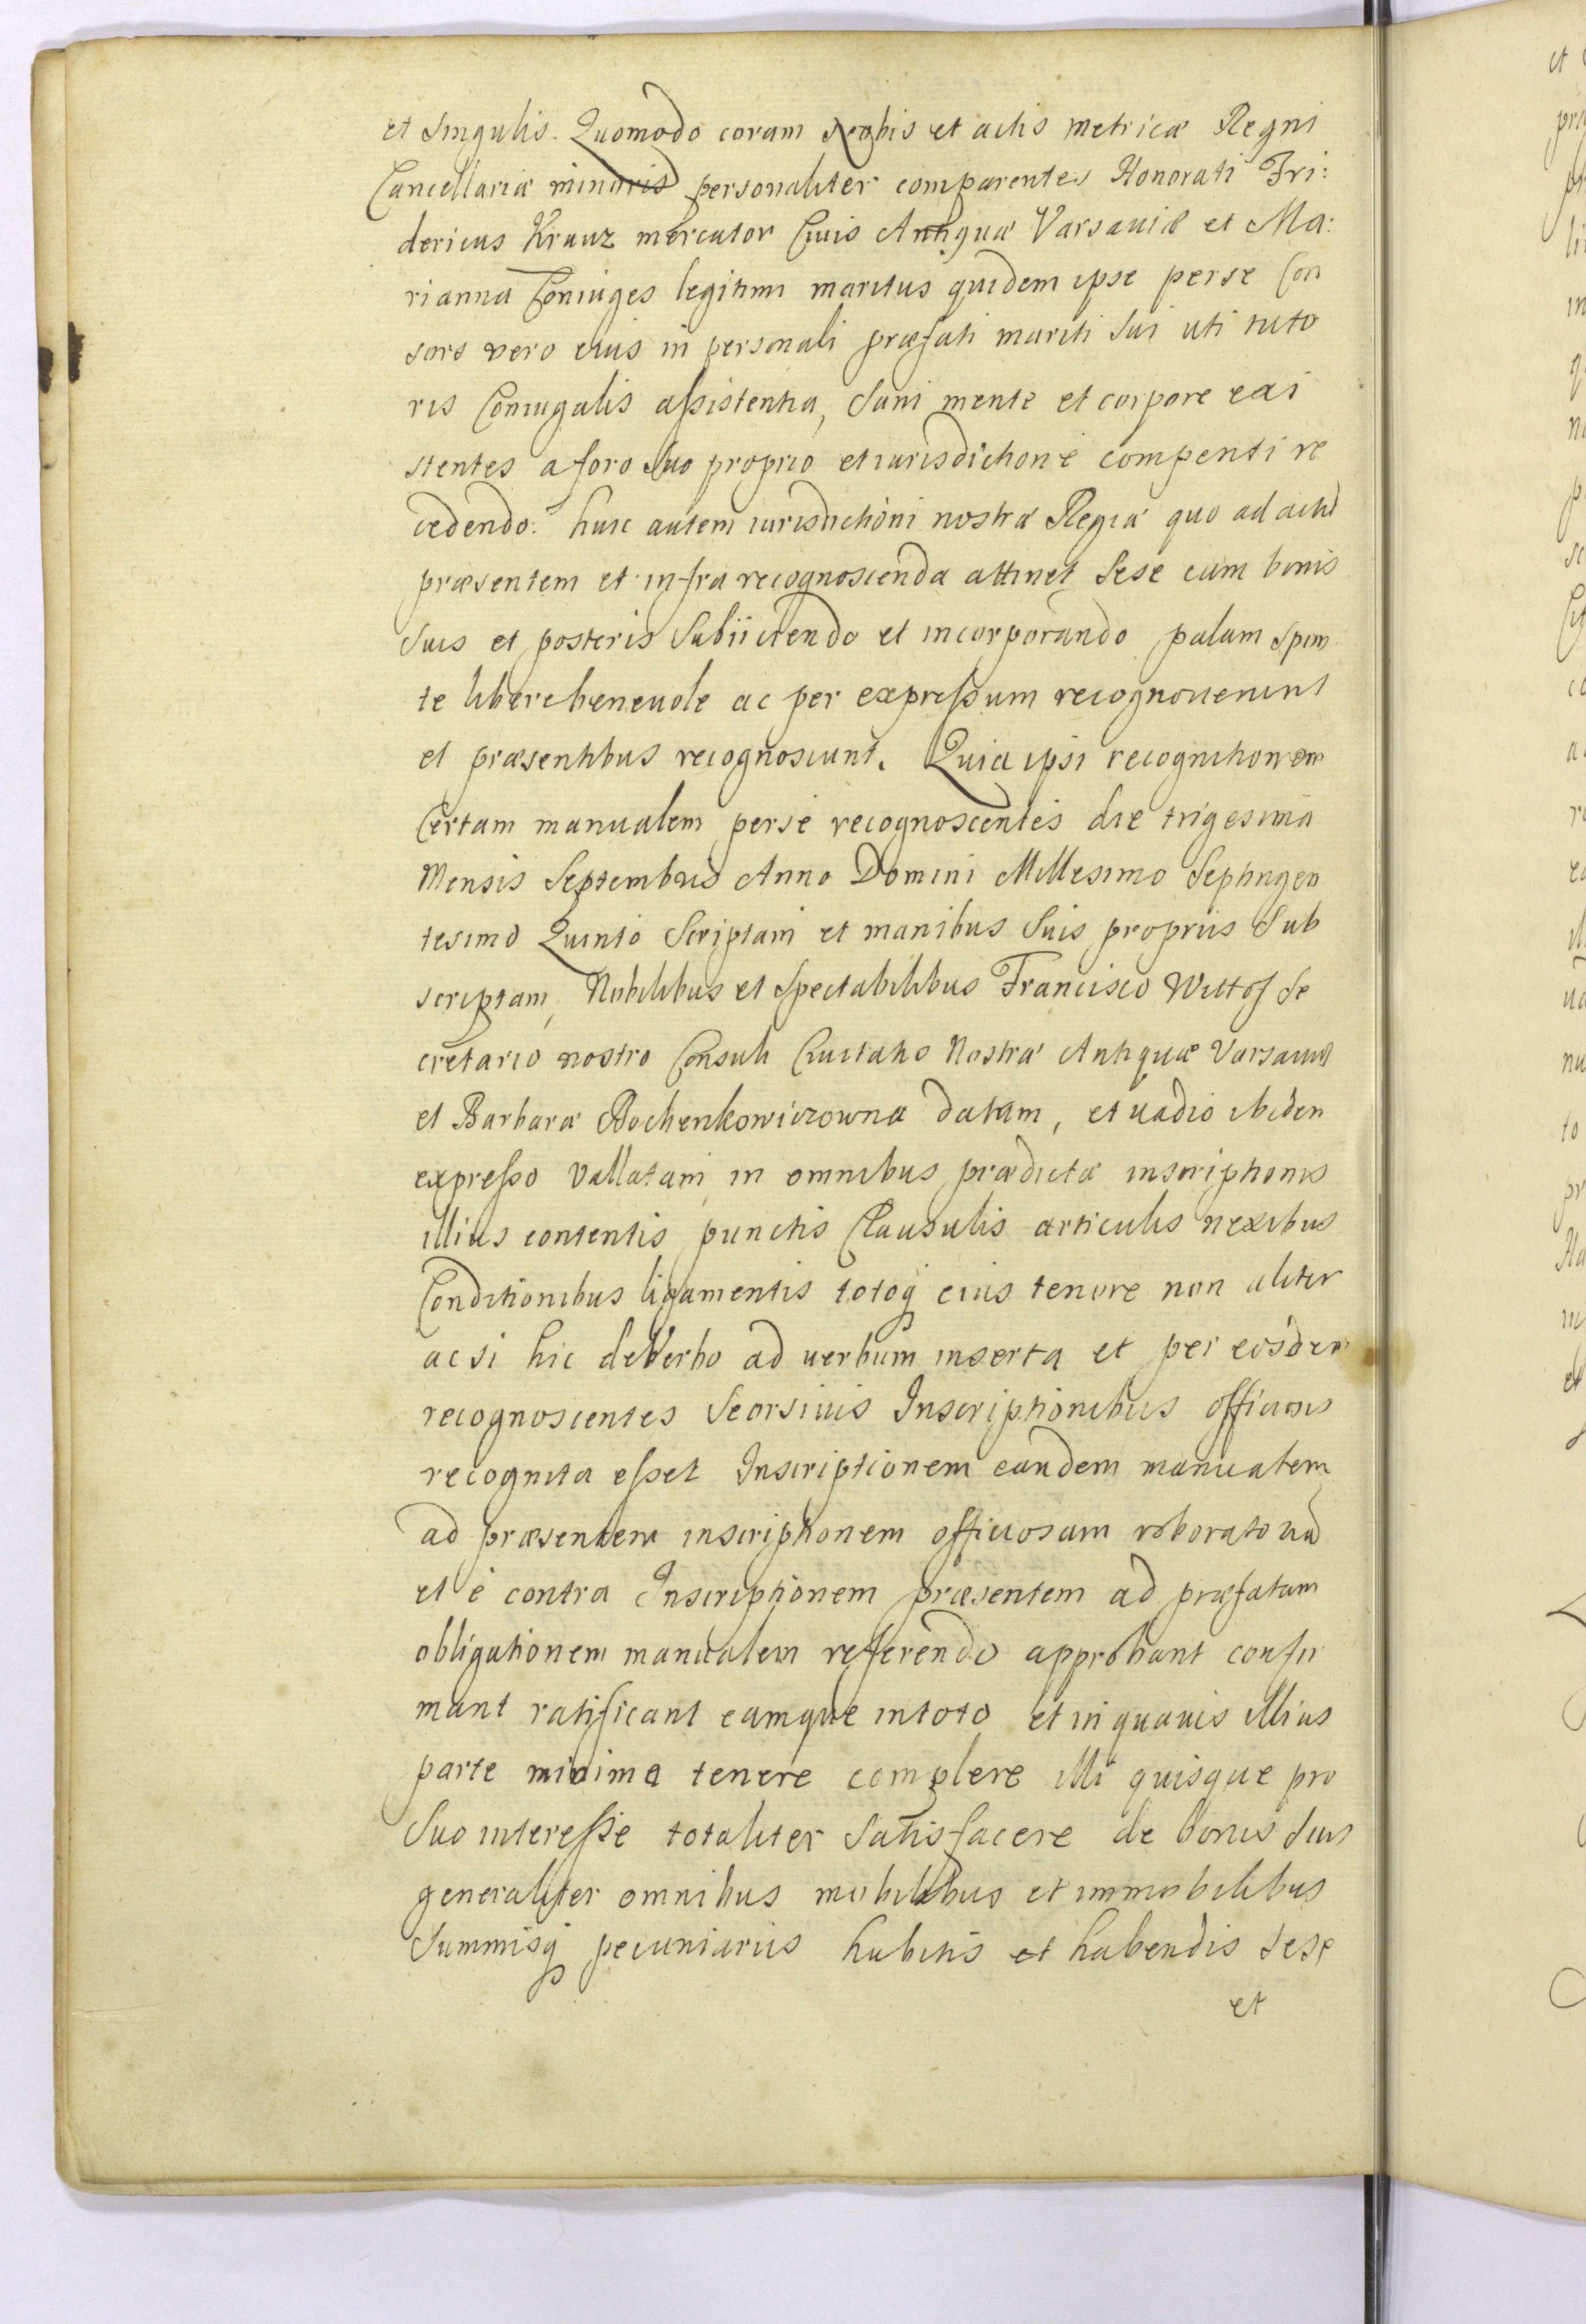 et Singulis. Quomodo coram Nobis et actis metricæ Regni
Cancellariæ minoris personaliter comparentes Honorati Fri:
dericus Krauz mercator Civis Antiquæ Varsaviæ et Ma:
rianna Coniuges legitimi maritus quidem ipse per se Con
sors vero eius in personali præfati mariti sui uti tuto
ris Coniugalis assistentia, Sani mente et corpore exi
stentes a foro suo proprio et iurisdictione compenti re
cedendo: huic autem iurisdictioni nostræ Regiæ quo ad actu
præsentem et infra recognoscenda attinet Sese cum bonis
Suis et posteris Subiiciendo et incorporando palam Spon
te libere benevole ac per expressum recognoverunt
et præsentibus recognoscunt. Quia ipsi recognitionem
Certam manualem per se recognoscentes die trigesima
Mensis Septembris Anno Domini Millesimo Septingen
tesimo Quinto Scriptam et manibus Suis propriis Sub
scriptam, Nobilibus et Spectabilibus Francisco Wittof Se
cretario nostro Consuli Civitatis Nostræ Antiquæ Varsaviæ
et Barbaræ Bochenkowiczowna datam, et vadio ibidem
expresso vallatam in omnibus prædictæ inscriptionis
illius contentis punctis Clausulis articulis nexibus
Conditionibus ligamentis totoq eius tenore non aliter
ac si hic de Verbo ad verbum inserta et per eosdem
recognoscentes Seorsivis Inscriptionibus officiosis
recognita esset Inscriptionem eandem manualem
ad præsentem inscriptionem officiosam roboratoria
et è contra Inscriptionem præsentem ad præfatam
obligationem manualem referendo approbant confir
mant ratificant eamque in toto et in quavis illius
parte minima tenere complere illi quisque pro
Suo interesse totaliter Satisfacere de bonis Suis
generaliter omnibus mobilibus et immobilibus
Summisq pecuniariis habitis et habendis sese
et